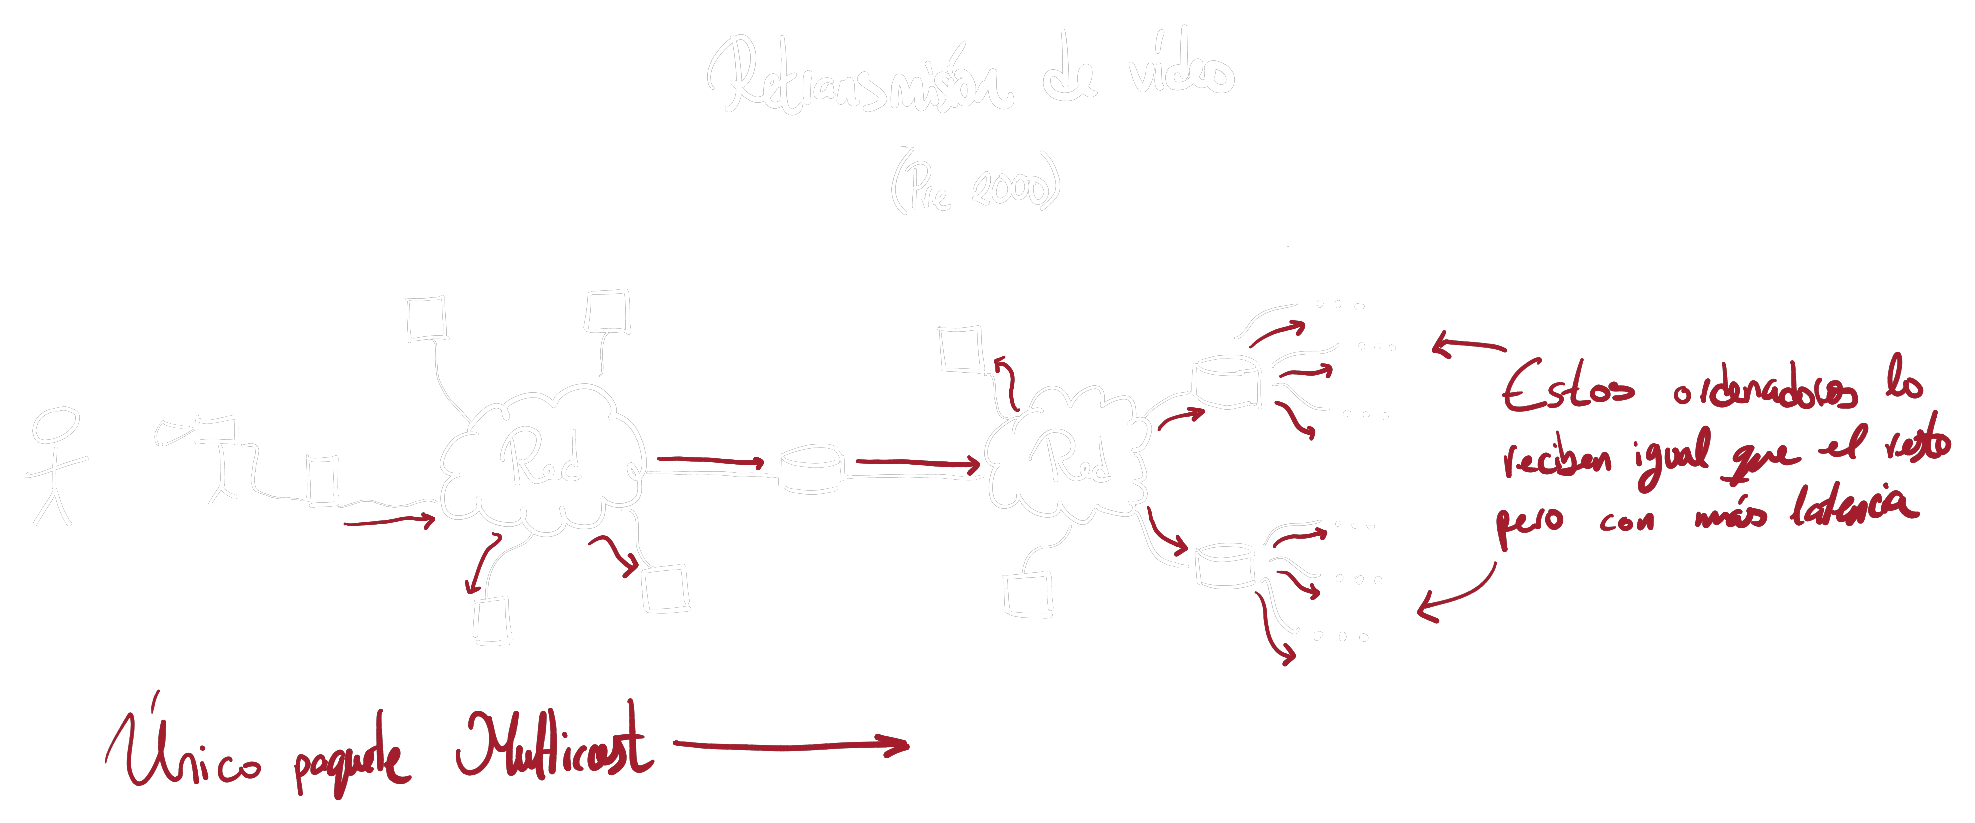 Retransmisión de vídeo
(Pre 2000)
Red
Red
Estos ordenadores lo
reciben igual que el resto
pero con más latencia
Único paquete Multicast